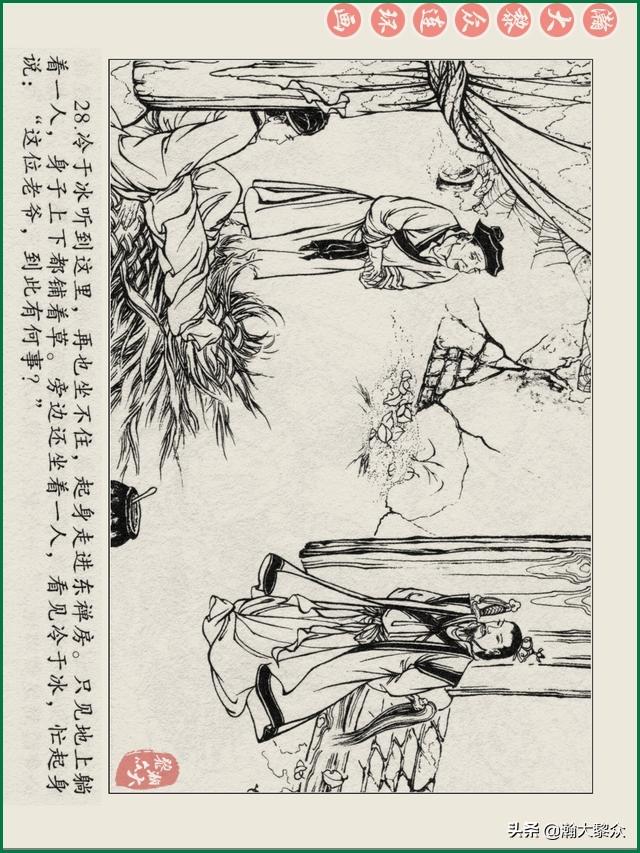 瀚大黎众连环画
28.冷于冰听到这里，再也坐不住，起身走进东禅房。只见地上躺
着一人，身子上下都铺着草。旁边还坐着一人，看见冷于冰，忙起身
说：“这位老爷，到此有何事？”
瀚大
黎众
头条 @瀚大黎众